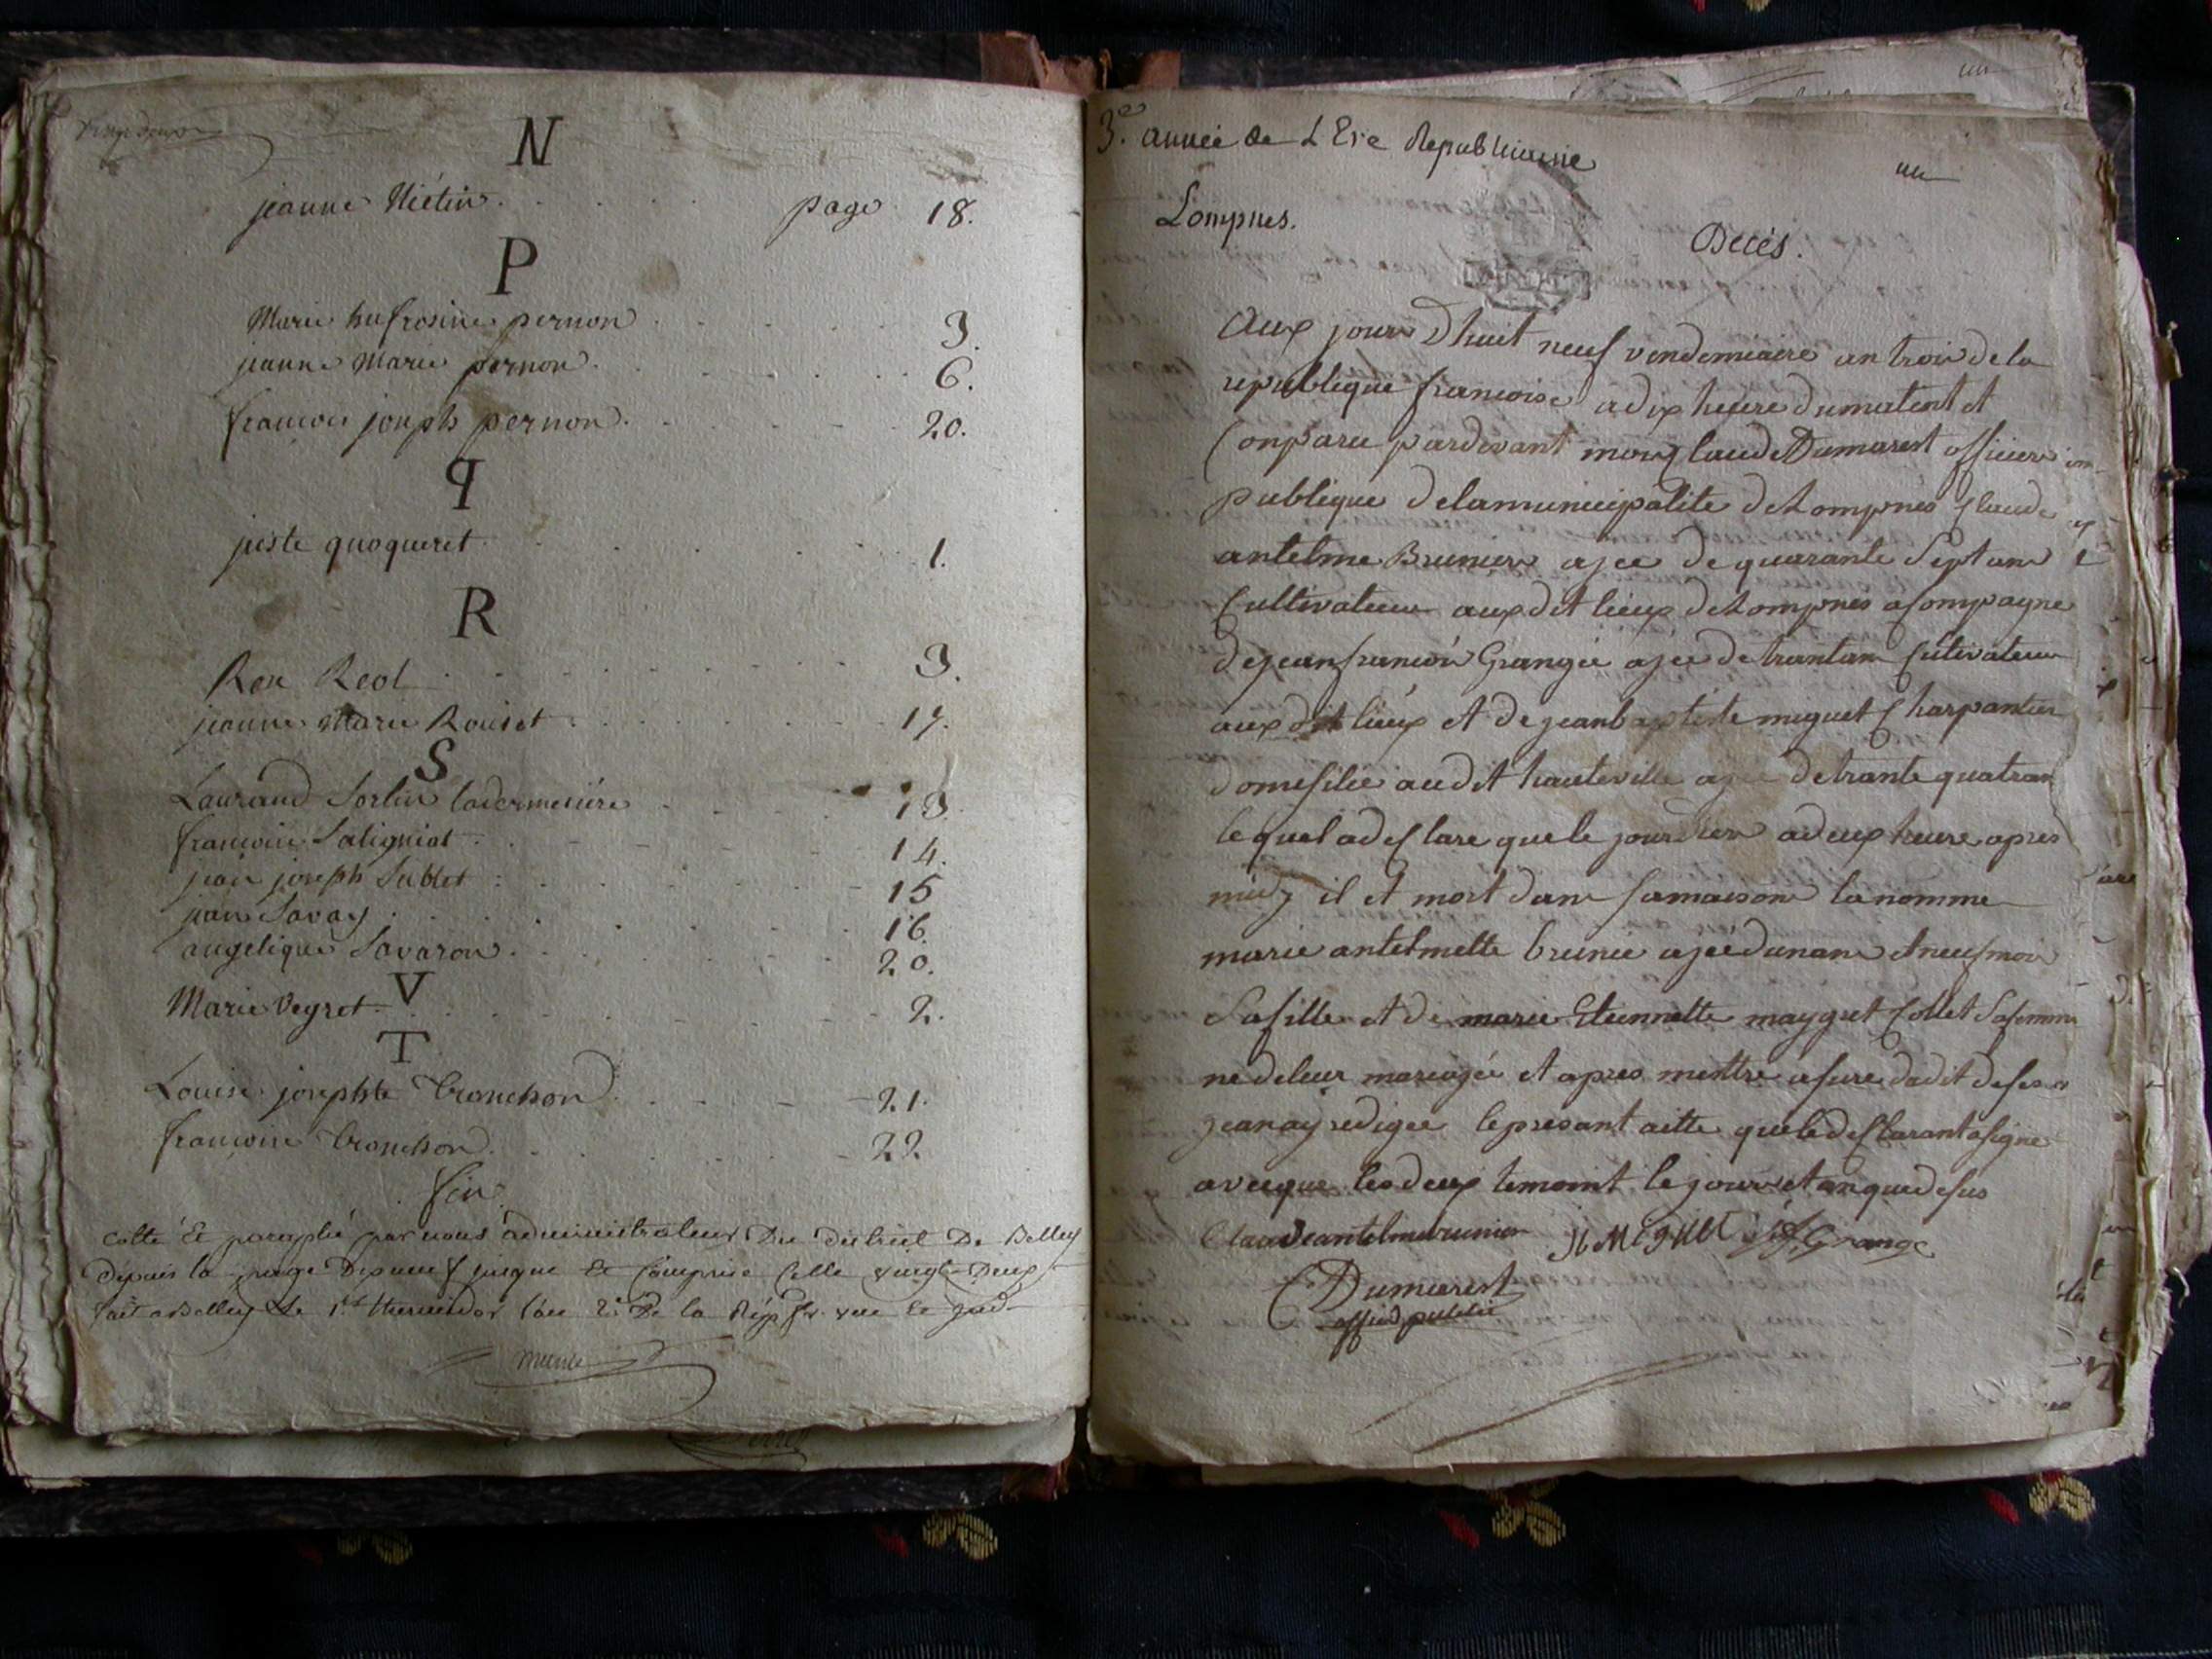 N
jeanne Niétin . . . . . page 18.
P
Marie hufrosine pernon . . . . 3.
jeanne Marie pernon . . . . 6.
francois joseph pernon . . . . 20.
q
juste quoqueret . . . . 1.
R
Reol . . . . 3.
jeanne Marie Rouset . . . . 17.
S
Laurand Sorlin . . . . 13
francoise Saligniat . . . . 14.
jean joseph Sublet . . . . 15
jane Savay . . . . 16.
angelique Savaron . . . . 20.
V
Marie Veyret . . . . 2.
T
Louise josephte tronchon . . . . 21.
francoise tronchon . . . . 22.
fin
Cotté et paraphé par nous administrateur Du district De Belley
Depuis la page Dixneuf jusque et Comprise Celle vingt Deux
fait a Belley le 1.er thermidor l'an 2.e De la Rép fr. une et Ind.
3.e année de L'Ere Republicaine
un
Lompnes.
Decès.
Aux jour D huit neuf vendemiaire an trois de la
republique francoise a dix heure du matent et
Conparu pardevant moy Claude Dumarest officier
publique de la municipalite de Lompnes Claude
antelme Brunier ajee de quarante Sept ans
Cultivateur aux dit lieux de Lompnes acompagne
de jean francois Grangée ajee de trantan Cultivateur
aux dit lieux et de jean baptiste miguet Charpantier
domesilié audit hauteville ajee de trante quatran
le quel a desclare que le jour dier a deux heure apres
midy il et mort dans sa maison la nomme
marie antelmette brunie ajee dunan et neuf mois
Sa fille et de marie Etiennette maygret Collet Safemm
ne de leur mariajée et apres mettre asure dudit deses
jeanay redigee le presant aitte que le desclarant asigne
avecque les deux temoint le jour et an que desus
Claude antelme brunier JB Miguet jf Grange
C Dumarest
offici public